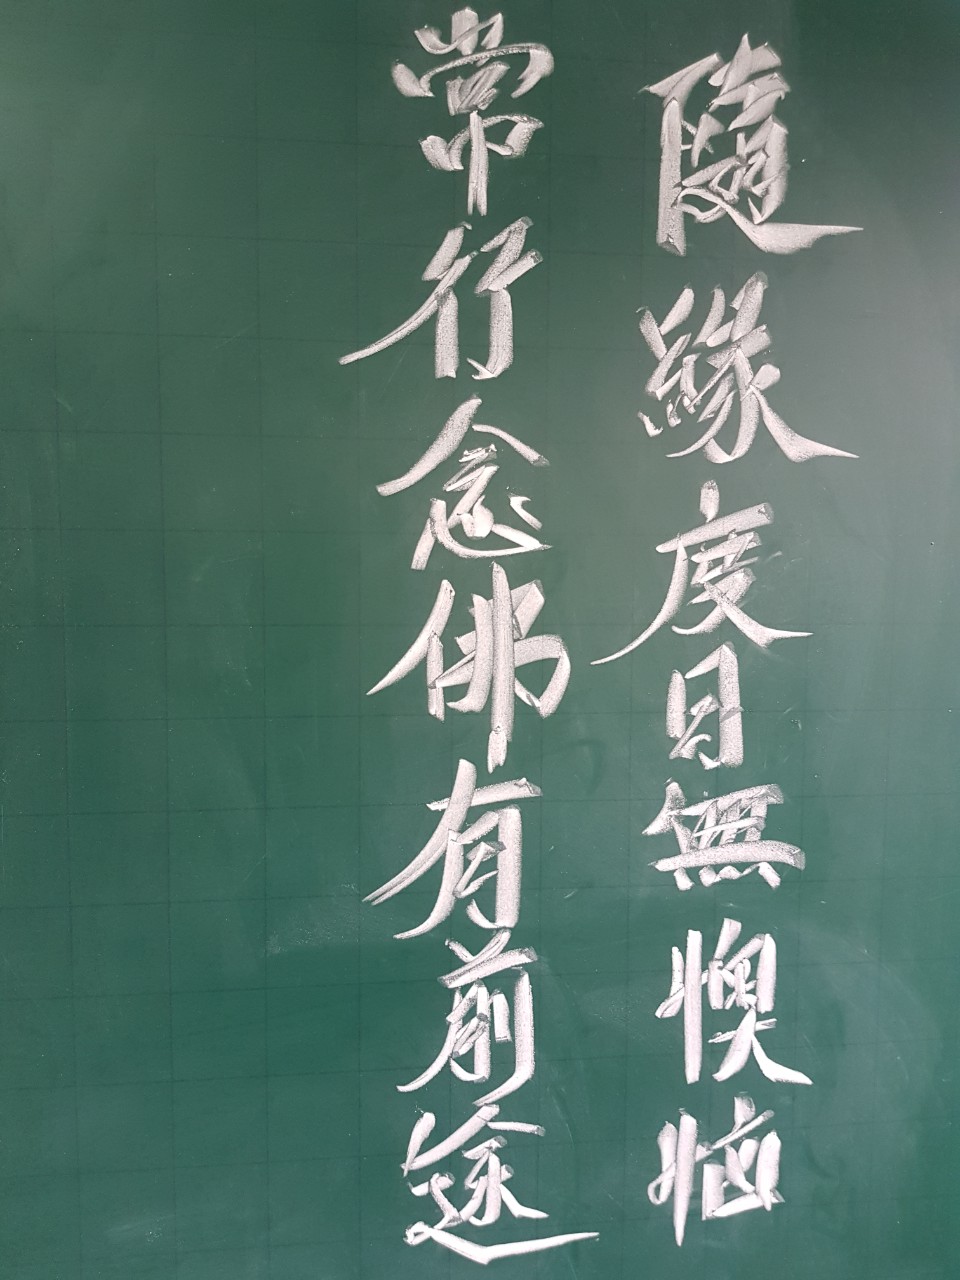 隨緣度日無懊惱
常行念佛有前途